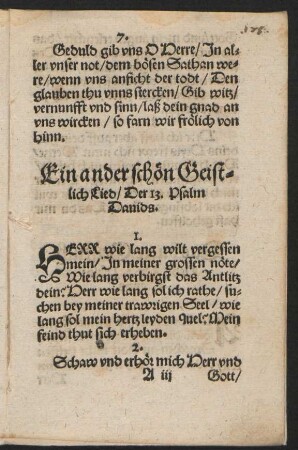 7.
Geduld gib vns O Herre/ In al-
ler vnser not/ dem bösen Sathan we-
re/ wenn vns anficht der todt/ Den
glauben thu vnns stercken/ Gib witz/
vernunfft vnd sinn/ laß dein gnad an
vns wircken/ so farn wir frölich von
hinn.
Ein ander schön Geist-
lich Lied/ Der 13. Psalm
Dauids.
1.
HERR wie lang wilt vergessen
mein/ In meiner grossen nöte/
Wie lang verbirgst das Antlitz
dein: Herr wie lang sol ich rathe/ su-
chen bey meiner trawrigen Seel/ wie
lang sol mein hertz leyden quel: Mein
feind thut sich erheben.
2.
Schaw vnd erhör mich Herr vnd
A iij Gott/